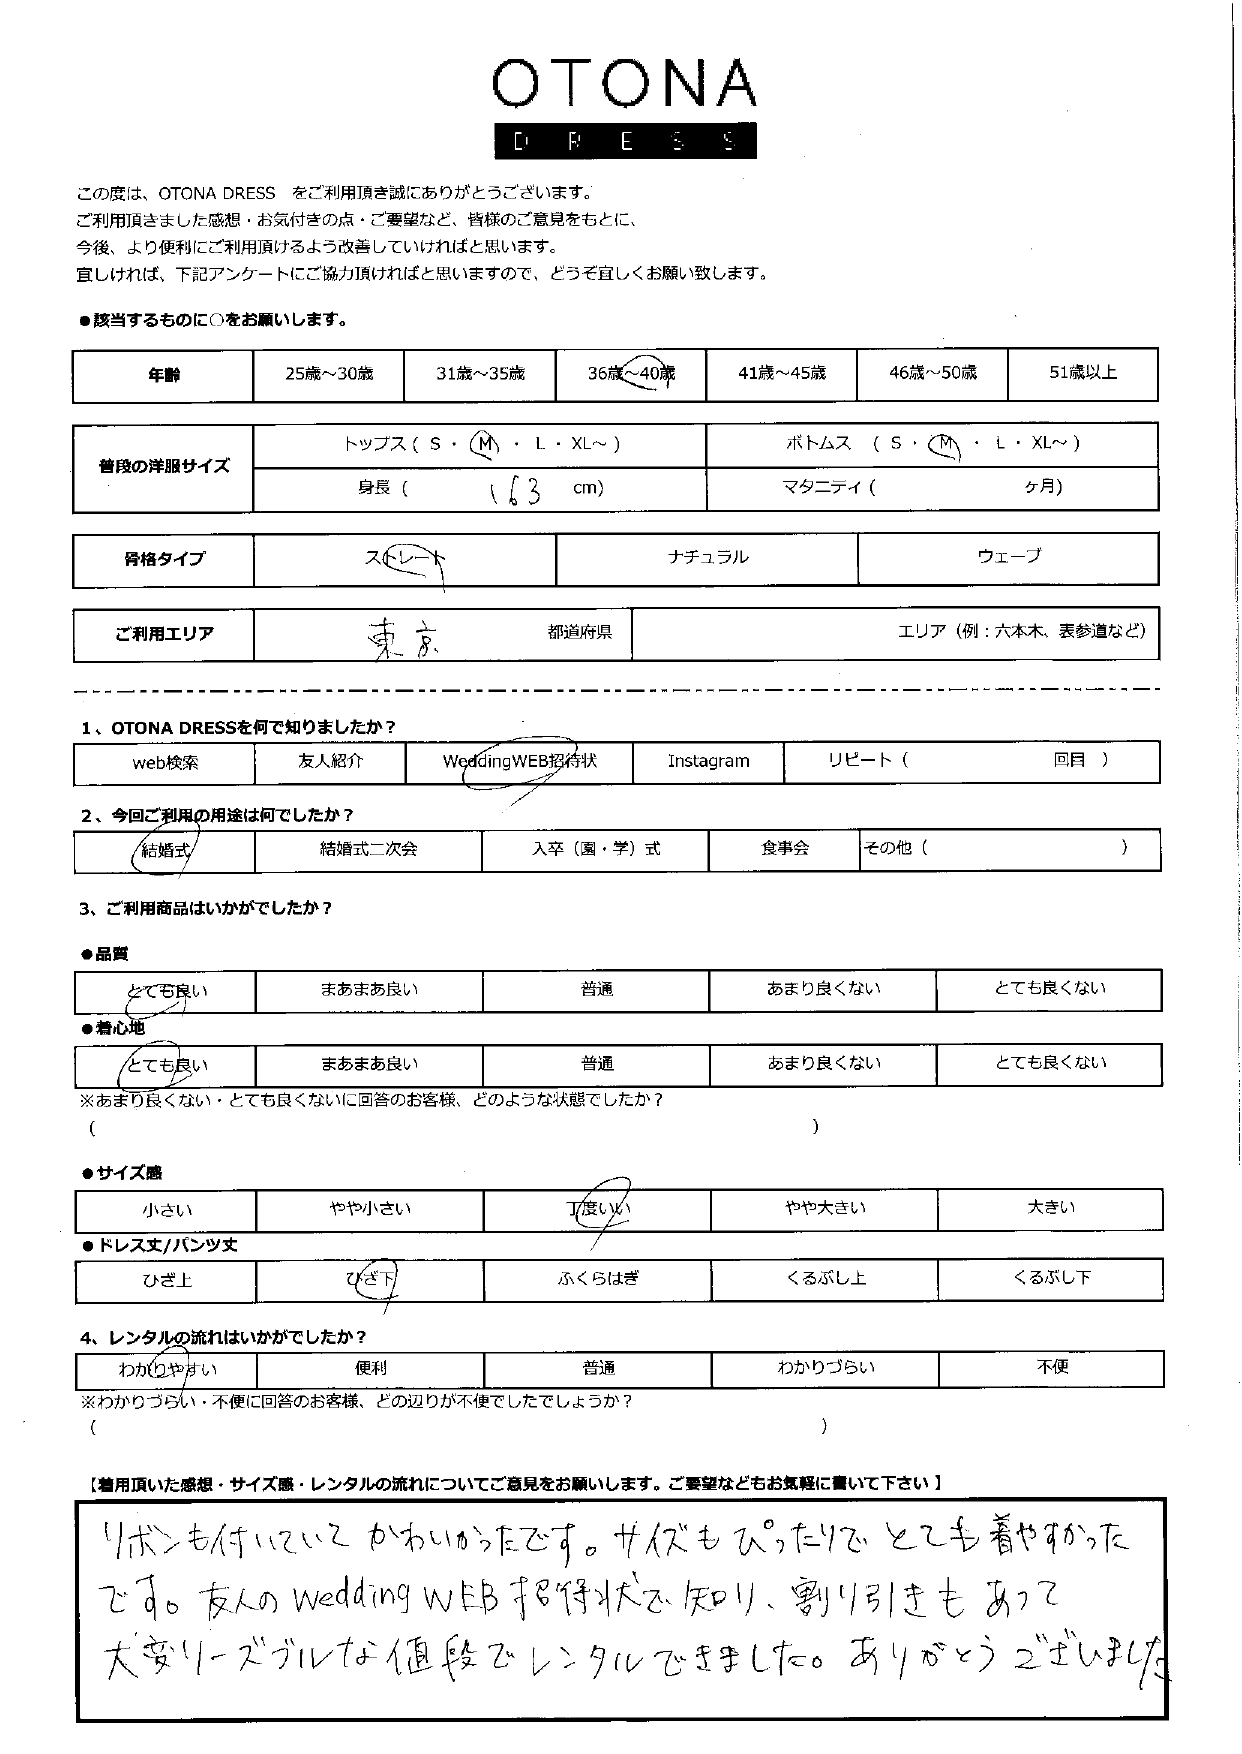 OTONA
DRESS
この度は、OTONA DRESS をご利用頂き誠にありがとうございます。
ご利用頂きました感想・お気付きの点・ご要望など、皆様のご意見をもとに、
今後、より便利にご利用頂けるよう改善していければと思います。
宜しければ、下記アンケートにご協力頂ければと思いますので、どうぞ宜しくお願い致します。
●該当するものに○をお願いします。
年齢 25歳～30歳 31歳～35歳 36歳～40歳 41歳～45歳 46歳～50歳 51歳以上
普段の洋服サイズ トップス ( S ・ M ・ L ・ XL～ ) ボトムス ( S ・ M ・ L ・ XL～ )
身長 ( 163 cm) マタニティ ( ケ月)
骨格タイプ ストレート ナチュラル ウェーブ
ご利用エリア 東京 都道府県 エリア（例：六本木、表参道など）
1、OTONA DRESSを何で知りましたか？
web検索 友人紹介 WeddingWEB招待状 Instagram リピート ( 回目 )
2、今回ご利用の用途は何でしたか？
結婚式 結婚式二次会 入卒（園・学）式 食事会 その他 ( )
3、ご利用商品はいかがでしたか？
●品質
とても良い まあまあ良い 普通 あまり良くない とても良くない
●着心地
とても良い まあまあ良い 普通 あまり良くない とても良くない
※あまり良くない・とても良くないに回答のお客様、どのような状態でしたか？
( )
●サイズ感
小さい やや小さい 丁度いい やや大きい 大きい
●ドレス丈/パンツ丈
ひざ上 ひざ下 ふくらはぎ くるぶし上 くるぶし下
4、レンタルの流れはいかがでしたか？
わかりやすい 便利 普通 わかりづらい 不便
※わかりづらい・不便に回答のお客様、どの辺りが不便でしたでしょうか？
( )
【着用頂いた感想・サイズ感・レンタルの流れについてご意見をお願いします。ご要望などもお気軽に書いて下さい】
リボンも付いていて かわいかったです。サイズも ぴったりで とても 着やすかった
です。友人の wedding WEB 招待状で 知り、割り引きも あって
大変リーズブルな 値段で レンタルできました。ありがとうございました